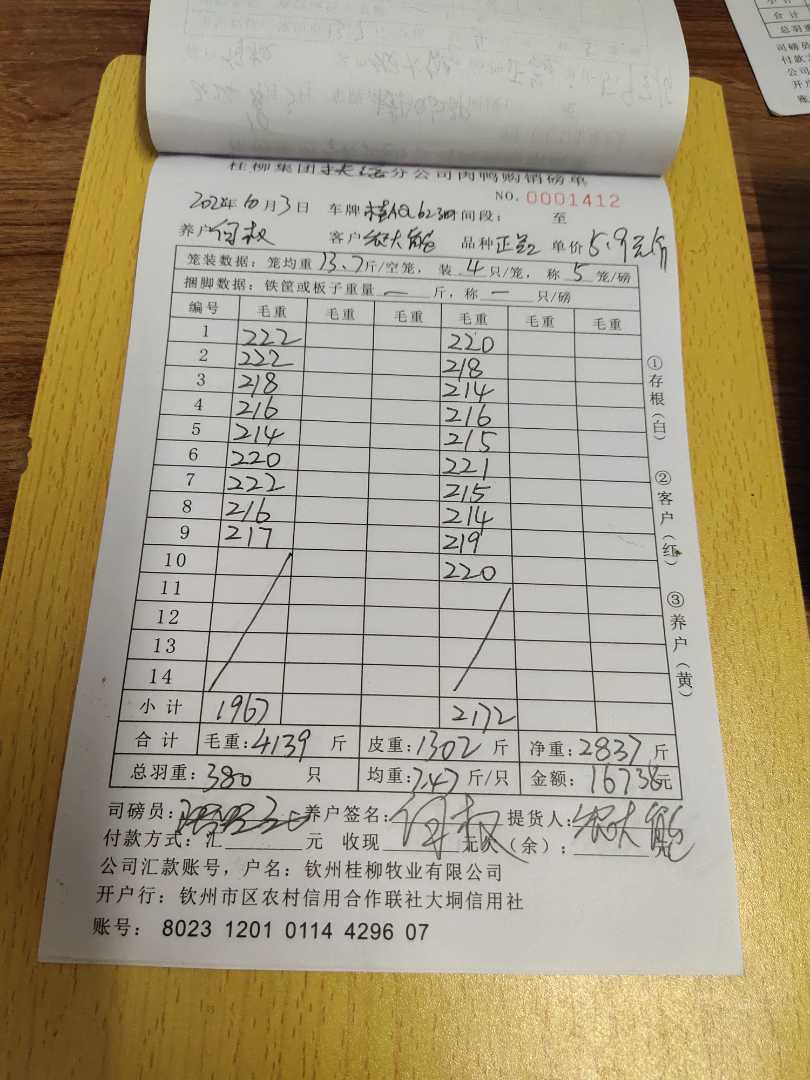 桂柳集团扶绥分公司肉鸭购销磅单
NO. 0001412
年10月3日 车牌 时间段: 至
养户 何权 客户 农大能 品种 单价 5.9元/斤
笼装数据: 笼均重 13.7 斤/空笼, 装 4 只/笼, 称 5 笼/磅
捆脚数据: 铁筐或板子重量 一 斤, 称 一 只/磅
编号 毛重 毛重 毛重 毛重 毛重 毛重
1 222 220
2 222 218
3 218 214
4 216 216
5 214 215
6 220 221
7 222 215
8 216 214
9 217 219
10 220
11
12
13
14
小计 1967 2172
合计 毛重: 4139 斤 皮重: 1302 斤 净重: 2837 斤
总羽重: 380 只 均重: 7.47 斤/只 金额: 16738元
司磅员: 养户签名: 何权 提货人: 农大能
付款方式: 汇 元 收现 元 (余): 元
公司汇款账号, 户名: 钦州桂柳牧业有限公司
开户行: 钦州市区农村信用合作联社大垌信用社
账号: 8023 1201 0114 4296 07
①存根(白)
②客户(红)
③养户(黄)